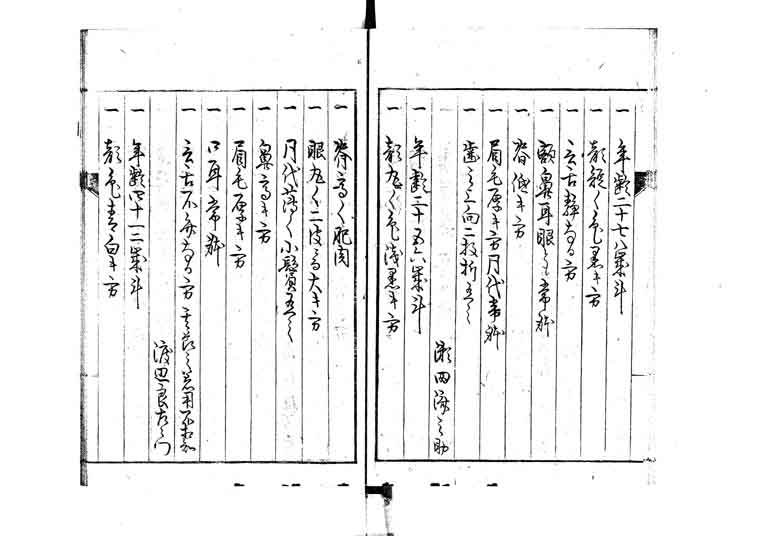 一 年齢二十七八歳斗
一 顔短く色黒キ方
一 言舌静なる方
一 額鼻耳眼とも常躰
一 脊低キ方
一 眉毛厚キ方月代常躰
一 歯之上向二枚折有之
瀬田済之助
一 年齢二十五六歳斗
一 顔丸く色浅黒キ方
一 脊高く肥肉
一 眼丸く二皮ニ而大キ方
一 月代薄く小鬢有之
一 鼻高キ方
一 眉毛厚キ方
一 口耳常躰
一 言舌不弁なる方 其節之着用不相知
渡辺良左衛門
一 年齢四十一二歳斗
一 顔色青白キ方